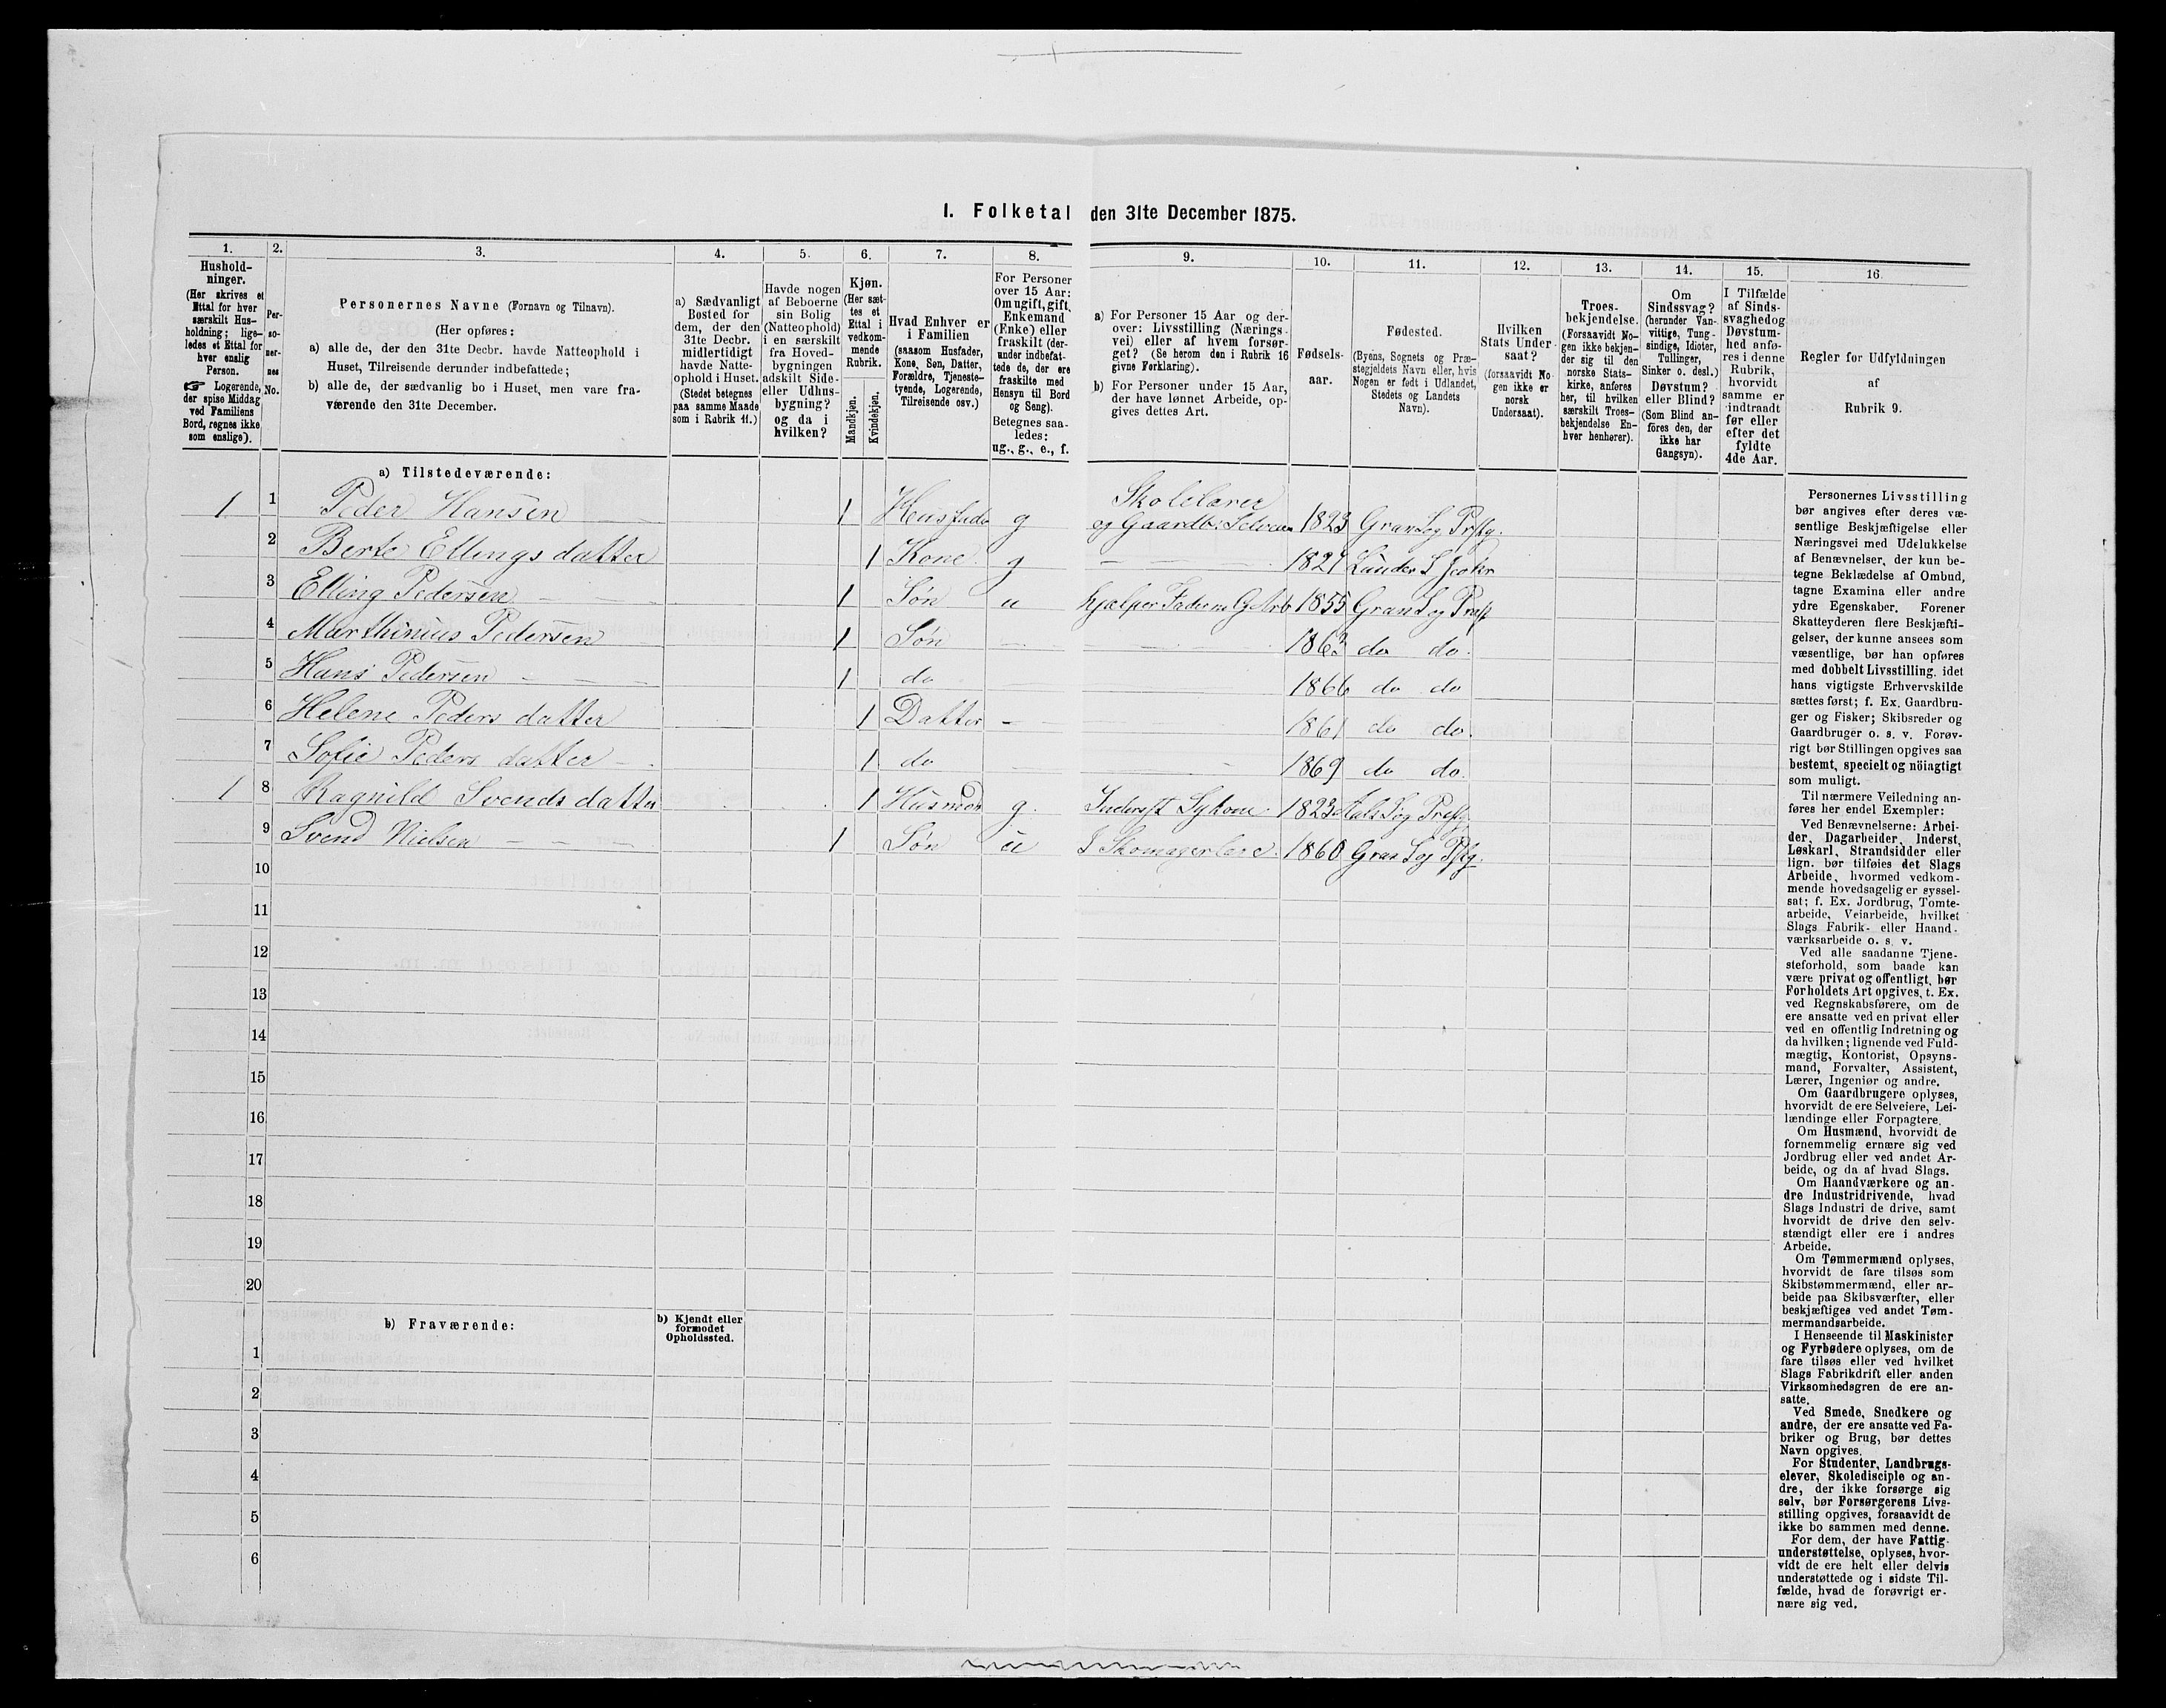 I. Folketal den 31te December 1875.
1. 2. 3. 4. 5. 6. 7. 8. 9. 10. 11. 12. 13. 14. 15. 16.
Hushold-
ninger.
(Her skrives et
Ettal for hver
særskilt Hus-
holdning; lige-
ledes et Ettal for
hver enslig
Person.
☞ Logerende,
der spise Middag
ved Familiens
Bord, regnes ikke
som enslige).
Per-
so-
ner-
nes
No.
Personernes Navne (Fornavn og Tilnavn).
(Her opføres:
a) alle de, der den 31te Decbr. havde Natteophold i
Huset, Tilreisende derunder indbefattede;
b) alle de, der sædvanlig bo i Huset, men vare fra-
værende den 31te December.
a) Sædvanligt
Bosted for
dem, der den
31te Decbr.
midlertidigt
havde Natte-
ophold i Huset.
(Stedet betegnes
paa samme Maade
som i Rubrik 11.)
Havde nogen
af Beboerne
sin Bolig
(Natteophold)
i en særskilt
fra Hoved-
bygningen
adskilt Side-
eller Udhus-
bygning?
og da i
hvilken?
Kjøn.
(Her sæt-
tes et
Ettal i
vedkom-
mende
Rubrik.
Mandkjøn.
Kvindekjøn.
Hvad Enhver er
i Familien
(saasom Husfader,
Kone, Søn, Datter,
Forældre, Tjeneste-
tyende, Logerende,
Tilreisende osv.)
For Personer
over 15 Aar:
Om ugift, gift,
Enkemand
(Enke) eller
fraskilt (der-
under indbefat-
tede de, der ere
fraskilte med
Hensyn til Bord
og Seng).
Betegnes saa-
ledes:
ug., g., e., f.
a) For Personer 15 Aar og der-
over: Livsstilling (Nærings-
vei) eller af hvem forsør-
get? (Se herom den i Rubrik 16
givne Forklaring).
b) For Personer under 15 Aar,
der have lønnet Arbeide, op-
gives dettes Art.
Fødsels-
aar.
Fødested.
(Byens, Sognets og Præ-
stegjeldets Navn eller, hvis
Nogen er født i Udlandet,
Stedets og Landets
Navn).
Hvilken
Stats Under-
saat?
(forsaavidt No-
gen ikke er
norsk
Undersaat).
Troes-
bekjendelse.
(Forsaavidt No-
gen ikke bekjen-
der sig til den
norske Stats-
kirke, anføres
her, til hvilken
særskilt Troes-
bekjendelse En-
hver henhører).
Om
Sindssvag?
(herunder Van-
vittige, Tung-
sindige, Idioter,
Tullinger,
Sinker o. desl.)
Døvstum?
eller Blind?
(Som Blind an-
føres den, der
ikke har
Gangsyn).
I Tilfælde
af Sinds-
svaghed og
Døvstum-
hed anfø-
res i denne
Rubrik,
hvorvidt
samme er
indtraadt
før eller
efter det
fyldte
4de Aar.
Regler for Udfyldningen
af
Rubrik 9.
a) Tilstedeværende:
Skolelærer
1 1 Peder Hansen 1 g og Gaardb: 1823 Gran
2 Berte Ellings datter 1 Kone g
3 Elling Pedersen 1 Søn u 1855 Gran
4 Marthinius Pedersen 1 Søn 1863 do do
5 Hans Pedersen 1 do 1866 do do
6 Helene Peders datter 1 Datter 1861 do do.
7 Sofie Peders datter 1 do 1869 do do.
1 8 Ragnild Svends datter 1 g 1823
9 Svend Nielsen 1 Søn u I Skomagerlære 1860 Gran
10
11
12
13
14
15
16
17
18
19
20
b) Fraværende:
b) Kjendt eller
formodet
Opholdssted.
1
2
3
4
5
6
Personernes Livsstilling
bør angives efter deres væ-
sentlige Beskjæftigelse eller
Næringsvei med Udelukkelse
af Benævnelser, der kun be-
tegne Beklædelse af Ombud,
tagne Examina eller andre
ydre Egenskaber. Forener
Skatteyderen flere Beskjæfti-
gelser, der kunne ansees som
væsentlige, bør han opføres
med dobbelt Livsstilling, idet
hans vigtigste Erhvervskilde
sættes først; f. Ex. Gaardbru-
ger og Fisker; Skibsreder og
Gaardbruger o. s. v. Forøv-
rigt bør Stillingen opgives saa
bestemt, specielt og nöiagtigt
som muligt.
Til nærmere Veiledning an-
føres her endel Exempler:
Ved Benævnelserne: Arbei-
der, Dagarbeider, Inderst,
Løskarl, Strandsidder eller
lign. bør tilføies det Slags
Arbeide, hvormed vedkom-
mende hovedsagelig er syssel-
sat; f. Ex. Jordbrug, Tomte-
arbeide, Veiarbeide, hvilket
Slags Fabrik- eller Haand-
værksarbeide o. s. v.
Ved alle saadanne Tjene-
steforhold, som baade kan
være privat og offentligt, bør
Forholdets Art opgives, t. Ex.
ved Regnskabsførere, om de
ere ansatte ved en privat eller
ved en offentlig Indretning og
da hvilken; lignende ved Fuld-
mægtig, Kontorist, Opsyns-
mand, Forvalter, Assistent,
Lærer, Ingeniør og andre.
Om Gaardbrugere oplyses,
hvorvidt de ere Selveiere, Lei-
lændinge eller Forpagtere.
Om Husmænd, hvorvidt de
fornemmelig ernære sig ved
Jordbrug eller ved andet Ar-
beide, og da af hvad Slags.
Om Haandværkere og an-
dre Industridrivende, hvad
Slags Industri de drive, samt
hvorvidt de drive den selv-
stændigt eller ere i andres
Arbeide.
Om Tømmermænd oplyses,
hvorvidt de fare tilsøs som
Skibstømmermænd, eller ar-
beide paa Skibsværfter, eller
beskjæftiges ved andet Tøm-
mermandsarbeide.
I Henseende til Maskinister
og Fyrbødere oplyses, om de
fare tilsøs eller ved hvilket
Slags Fabrikdrift eller anden
Virksomhedsgren de ere an-
satte.
Ved Smede, Snedkere og
andre, der ere ansatte ved Fa-
briker og Brug, bør dettes
Navn opgives.
For Studenter, Landbrugs-
elever, Skoledisciple og an-
dre, der ikke forsørge sig
selv, bør Forsørgerens Livs-
stilling opgives, forsaavidt de
ikke bo sammen med denne.
For dem, der have Fattig-
understøttelse, oplyses, hvor-
vidt de ere helt eller delvis
understøttede og i sidste Til-
fælde, hvad de forøvrigt er-
nære sig ved.